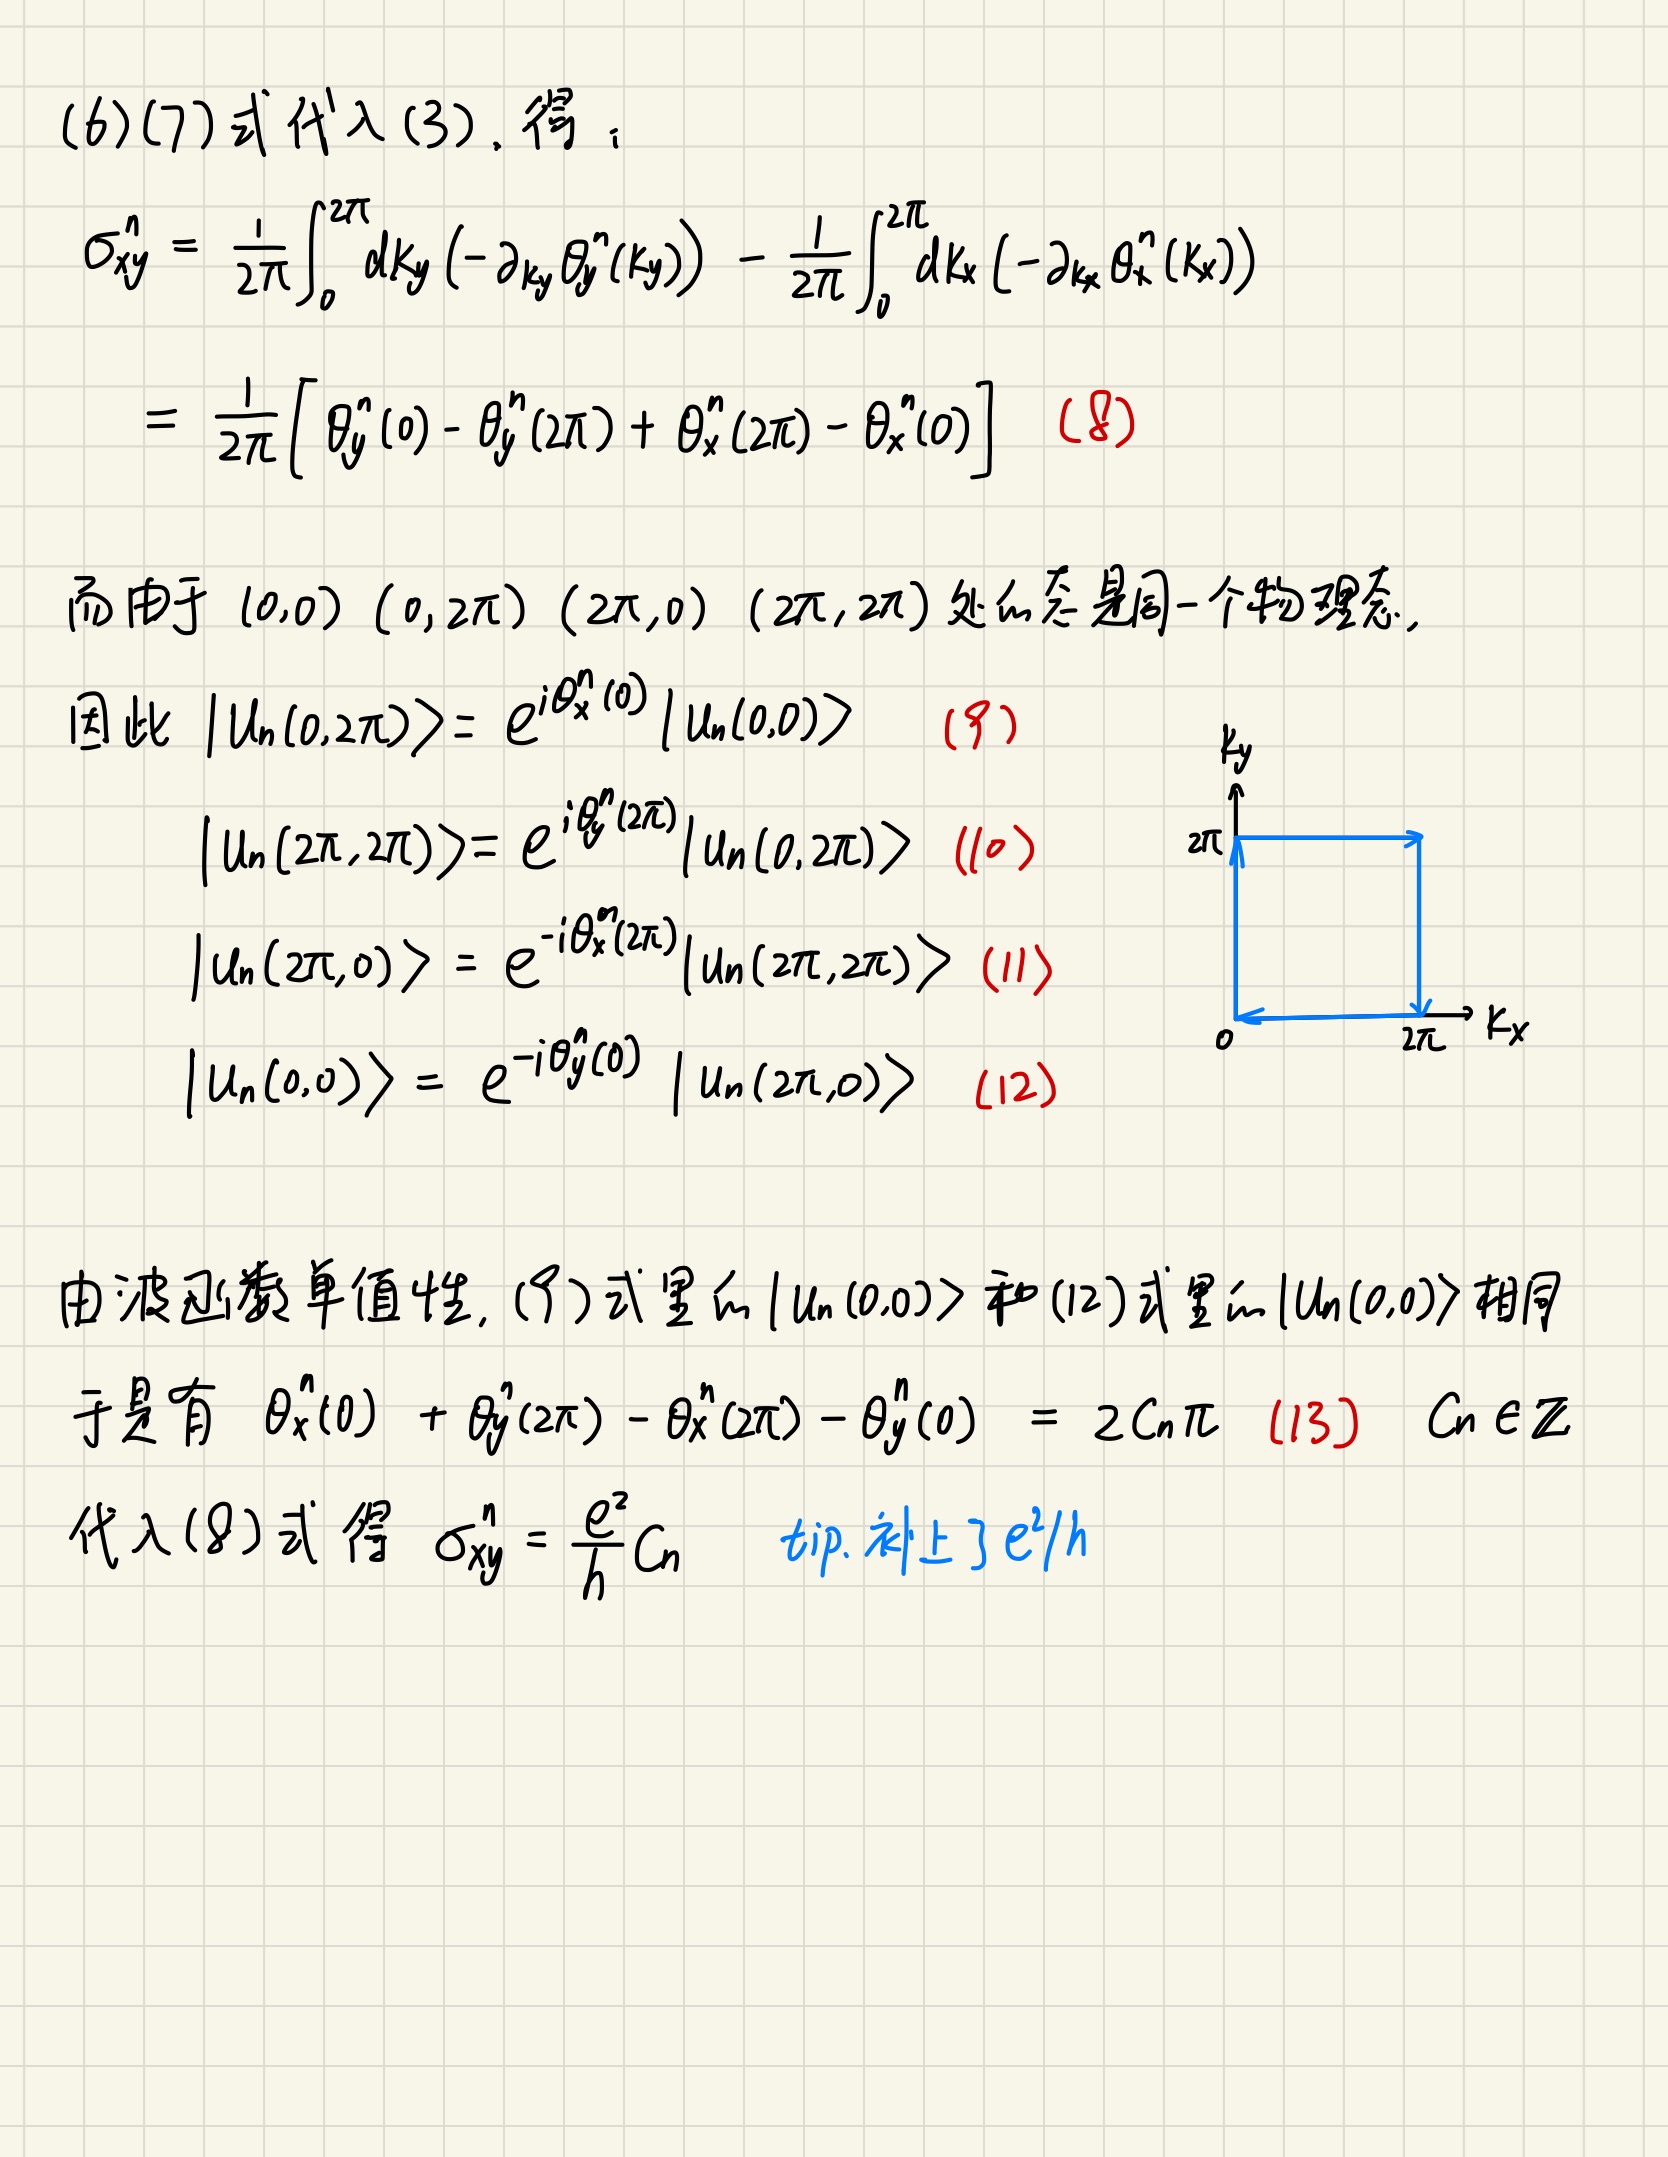 (6)(7)式代入(3).得:
σⁿ_xy = 1/2π ∫₀^2π dk_y (-∂_ky θⁿ_y(k_y)) - 1/2π ∫₀^2π dk_x (-∂_kx θⁿ_x(k_x))
= 1/2π [θⁿ_y(0) - θⁿ_y(2π) + θⁿ_x(2π) - θⁿ_x(0)] (8)
而由于 (0,0) (0,2π) (2π,0) (2π,2π) 处的态是同一个物理态,
因此 |u_n(0,2π)> = e^{iθⁿ_x(0)} |u_n(0,0)> (9)
|u_n(2π,2π)> = e^{iθⁿ_y(2π)} |u_n(0,2π)> (10)
|u_n(2π,0)> = e^{-iθⁿ_x(2π)} |u_n(2π,2π)> (11)
|u_n(0,0)> = e^{-iθⁿ_y(0)} |u_n(2π,0)> (12)
k_y
2π
0
2π
k_x
由波函数单值性, (9)式里的|u_n(0,0)>和(12)式里的|u_n(0,0)>相同
于是有 θⁿ_x(0) + θⁿ_y(2π) - θⁿ_x(2π) - θⁿ_y(0) = 2C_nπ (13) C_n∈ℤ
代入(8)式得 σⁿ_xy = e²/h C_n tip. 补上了e²/h